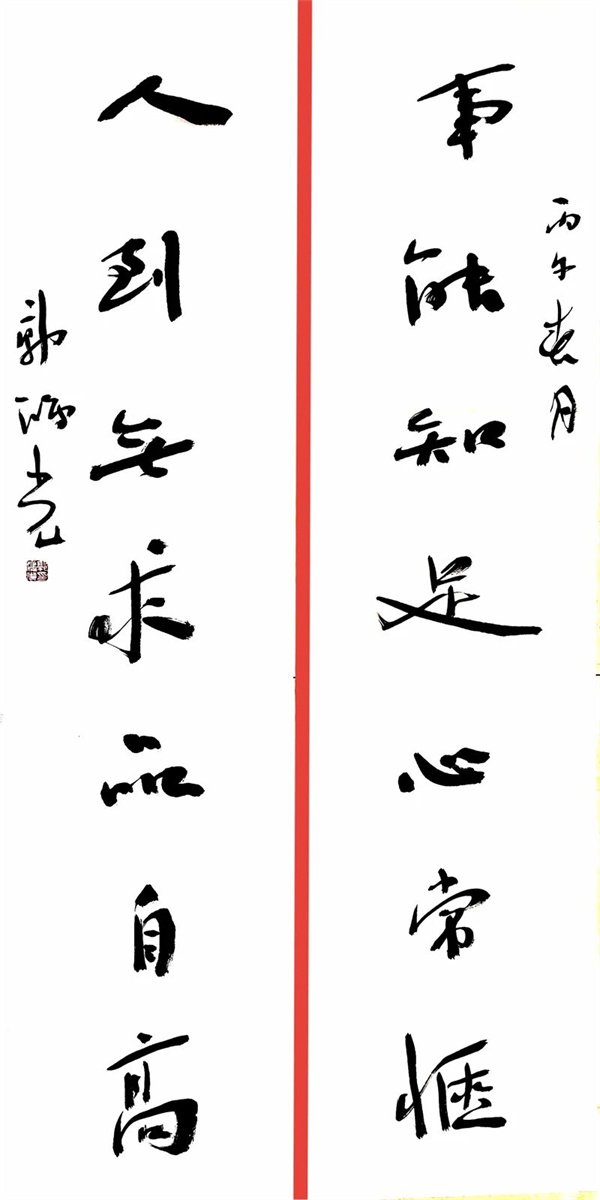 丙午春月
事能知足心常惬
人到無求品自高
郭